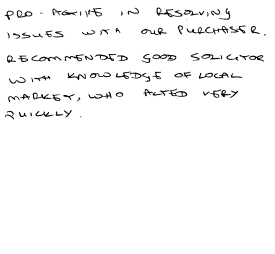 PRO-ACTIVE IN RESOLVING
ISSUES WITH OUR PURCHASER.
RECOMMENDED GOOD SOLICITOR
WITH KNOWLEDGE OF LOCAL
MARKET, WHO ACTED VERY
QUICKLY.